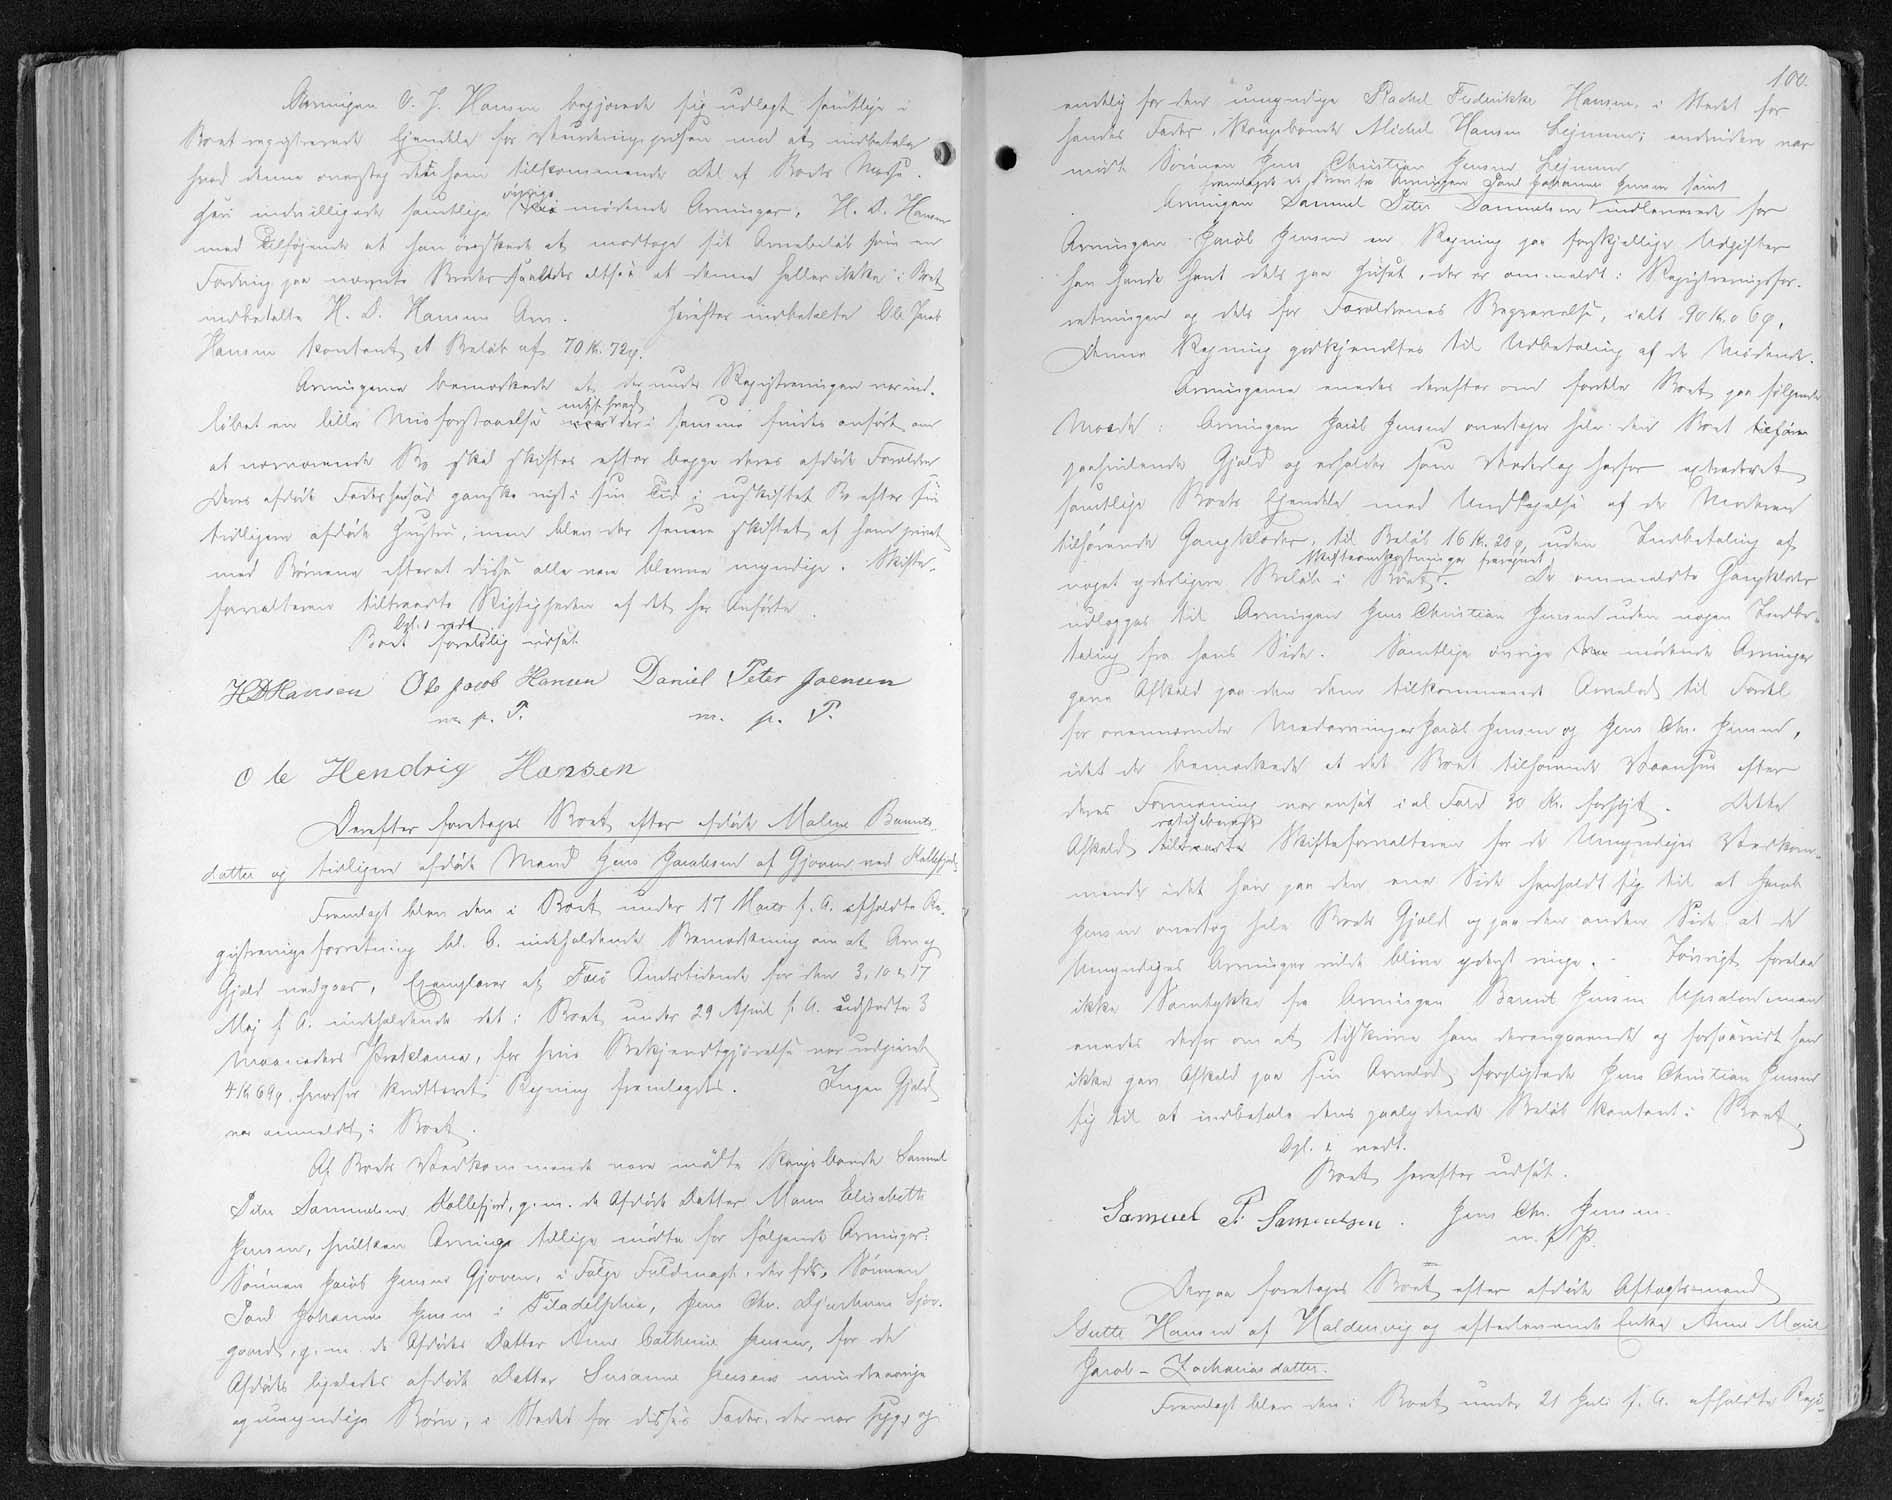 Arvingen O. J. Hansen begjærede sig udlagt samtlige i
Boet registrerede Ejendele for Vurderingsprisen mod at indbetale
hvad denne oversteg den ham tilkommende Del af Boets Masse.
Heri indvilligede samtlige øvrige mødende Arvinger, H. D. Hansen
med Tilføjende at han ønskede at modtage sit Arvebeløb som en
Fordring paa nævnte Broder saaledes altsaa at denne heller ikke i Boet
indbetalte H. D. Hansens Arv. Herefter indbetalte Ole Jacob
Hansen kontant et Beløb af 70 Kr. 72 ø.
Arvingerne bemærkede at der under Registreringen var ind-
løbet en lille Misforstaaelse med hvad der i samme findes anført om
at nærværende Bo skal skiftes efter begge deres afdøde Forældre
Deres afdøde Fader hensad ganske vist i sin Tid i uskiftet Bo efter sin
tidligere afdøde Hustru, men blev der senere skiftet af ham privat
med Børnene efterat disse alle vare blevne myndige. Skifte-
forvalteren tiltraadte Rigtigheden af det her Anførte.
Opl. & vedt.
Boet foreløbig udsat.
HDHansen Ole Jacob Hansen Daniel Peter Joensen
m. p. P. m. p. P.
Ole Hendrig Hansen
Derefter foretoges Boet efter afdøde Malene Baunts-
datter og tidligere afdøde Mand Jens Jacobsen af Gjoven ved Kollefjord.
Fremlagt blev den i Boet under 17 Marts f. A. afholdte Re-
gistreringsforretning bl. a. indeholdende Bemærkning om at Arv og
Gjæld vedgaaes, Exemplarer af Færø Amtstidende for den 3, 10 & 17
Maj f. A. indeholdende det i Boet under 29 April f. A. udstedte 3
Maaneders Proklama, for hvis Bekjendtgjørelse var udgivet
4 Kr 69 ø, hvorfor kvitteret Regning fremlagdes. Ingen Gjæld
var anmeldt i Boet.
Af Boets Vedkommende vare mødte Kongsbonde Samuel
Peter Samuelsen Kollefjord, g. m. de Afdødes Datter Maren Elisabeth
Jensen, hvilken Arving tillige mødte for følgende Arvinger:
Sønnen Jacob Jensen Gjoven, i Følge Fuldmagt, der fdl., Sønnen
Poul Johannes Jensen i Filadelphia, Jens Chr. Djurhuus
gaard, g. m. de Afdødes Datter Anne Cathrine Jensen, for de
Afdødes ligeledes afdøde Datter Susanne Jensens mindreaarige
og umyndige Børn, i Stedet for disses Fader, der var syg, og
100.
endelig for den umyndige Rachel Frederikke Hansen, i Stedet for
hendes Fader, Kongsbonde Michel Hansen Lejnum; endvidere var
mødt Sønnen Jens Christian Jensen Lejnum
fremlagde et Brev fra Arvingen Poul Johannes Jensen samt
Arvingen Samuel Peter Samuelsen indleverede for
Arvingen Jacob Jensen en Regning paa forskjellige Udgifter
han havde havt dels paa Huset, der er ommeldt i Registreringsfor-
retningen og dels for Forældrenes Begravelse, ialt 90 Kr. 06 ø.
Denne Regning godkjendtes til Udbetaling af de Mødende.
Arvingerne enedes derefter om fordele Boet paa følgende
Maade: Arvingen Jacob Jensen overtager hele den Boet
paahvilende Gjæld og erholder som Vederlag herfor extraderet
samtlige Boets Ejendele med Undtagelse af de Moderen
tilhørende Gangklæder, til Beløb 16 Kr. 20 ø, uden Indbetaling af
noget yderligere Beløb i Boet, Skifteomkostninger fraregnet. De ommeldte Gangklæder
udlægges til Arvingen Jens Christian Jensen uden nogen Indbe-
taling fra hans Side. Samtlige øvrige mødende Arvinger
gave Afkald paa den dem tilkommende Arvelod til Fordel
for ovennævnte Medarvinger Jacob Jensen og Jens Chr. Jensen,
idet de bemærkede at det Boet tilhørende Vaanhus efter
deres Formening var ansat i al Fald 30 Kr. for højt. Dette
Afkald ratihaberede Skifteforvalteren for de Umyndiges Vedkom-
mende idet han paa den ene Side henholdt sig til at Jacob
Jensen overtog hele Boets Gjæld og paa den anden Side at de
Umyndiges Arvinger vilde blive yderst ringe. Iøvrigt forelaa
ikke Samtykke fra Arvingen Baunt Jensen
enedes derfor om at tilskrive ham derangaaende og forsaavidt han
ikke gav Afkald paa sin Arvelod forpligtede Jens Christian Jensen
sig til at indbetale dens paalydende Beløb kontant i Boet.
Opl. & vedt.
Boet herefter udsat.
Samuel P. Samuelsen. Jens Chr. Jensen
m. p. P.
Derpaa foretoges Boet efter afdøde Aftægtsmand
Gutte Hansen af Haldersvig og efterlevende Enke Anne Marie
Jacob-Zachariasdatter.
Fremlagt blev den i Boet under 21 Juli f. A. afholdte Regi-